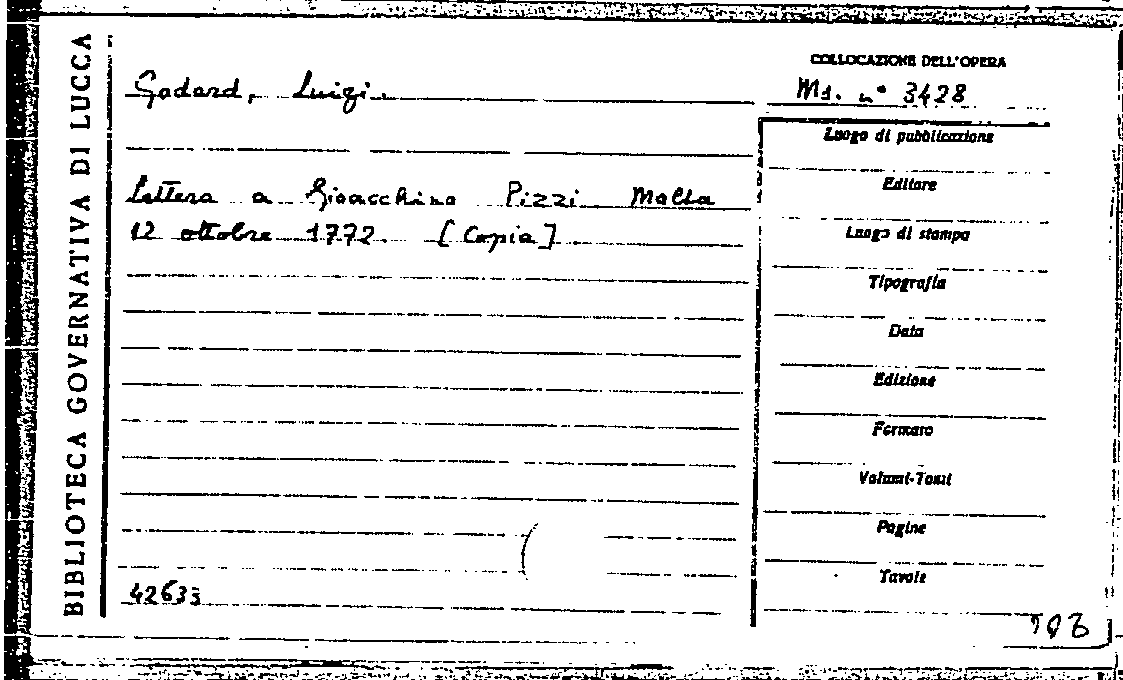 BIBLIOTECA GOVERNATIVA DI LUCCA
Godard, Luigi.
Lettera a Gioacchino Pizzi Malta
12 ottobre 1772. [Copia].
42633
COLLOCAZIONE DELL'OPERA
Ms. n° 3428
Luogo di pubblicazione
Editore
Luogo di stampa
Tipografia
Data
Edizione
Formato
Volumi-Tomi
Pagine
Tavole